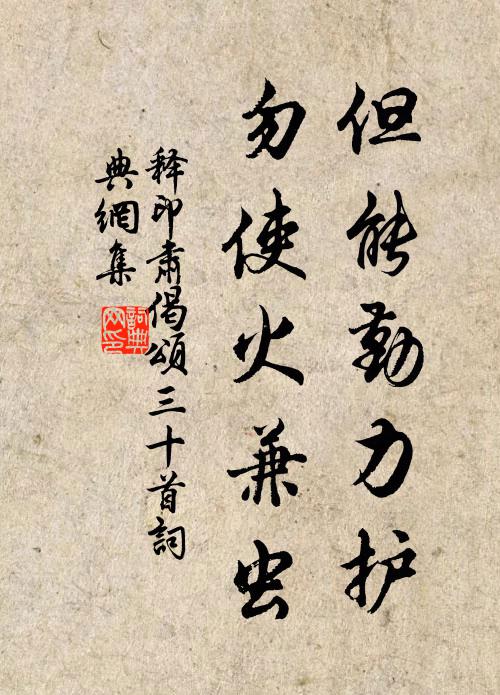 但能勤力护
勿使火兼虫
释印肃偈颂三十首詞
典網集
詞典网印